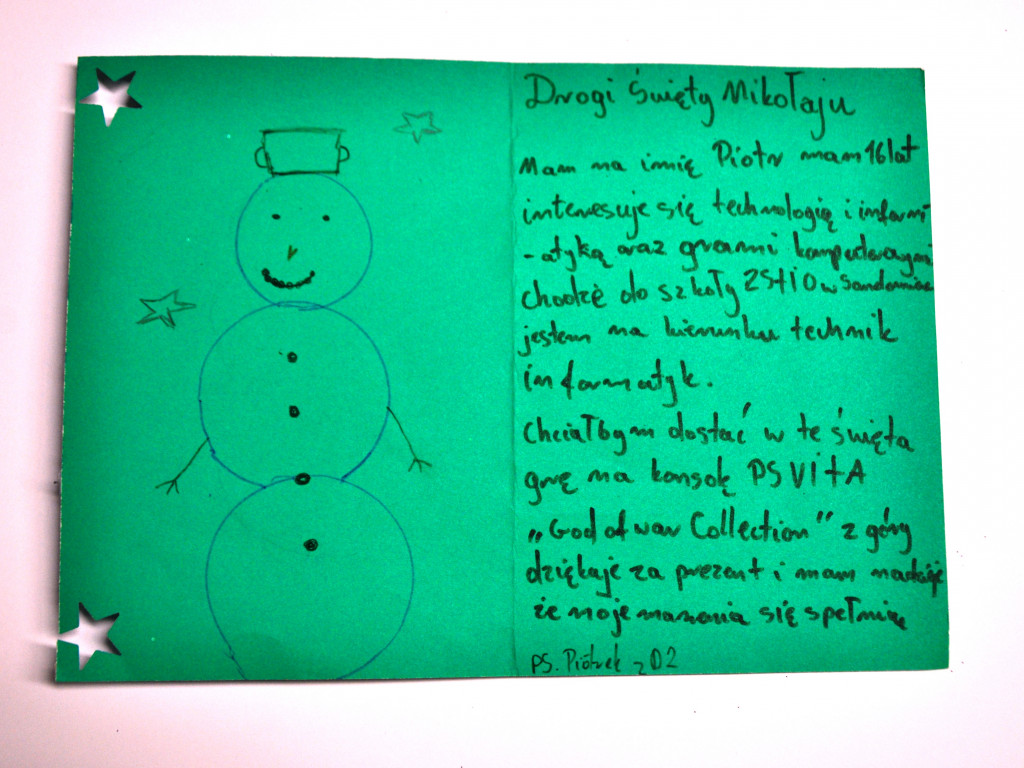 Drogi Święty Mikołaju
Mam na imię Piotr mam 16 lat
interesuje się technologią i inform
-atyką oraz grami komputerowymi
chodzę do szkoły ZSTIO w Sandomierz
jestem na kierunku technik
informatyk.
Chciałbym dostać w te święta
grę na konsolę PS VITA
„God of war Collection" z góry
dziękuje za prezent i mam nadzieję
że moje marzenia się spełnią
PS. Piotrek z D2